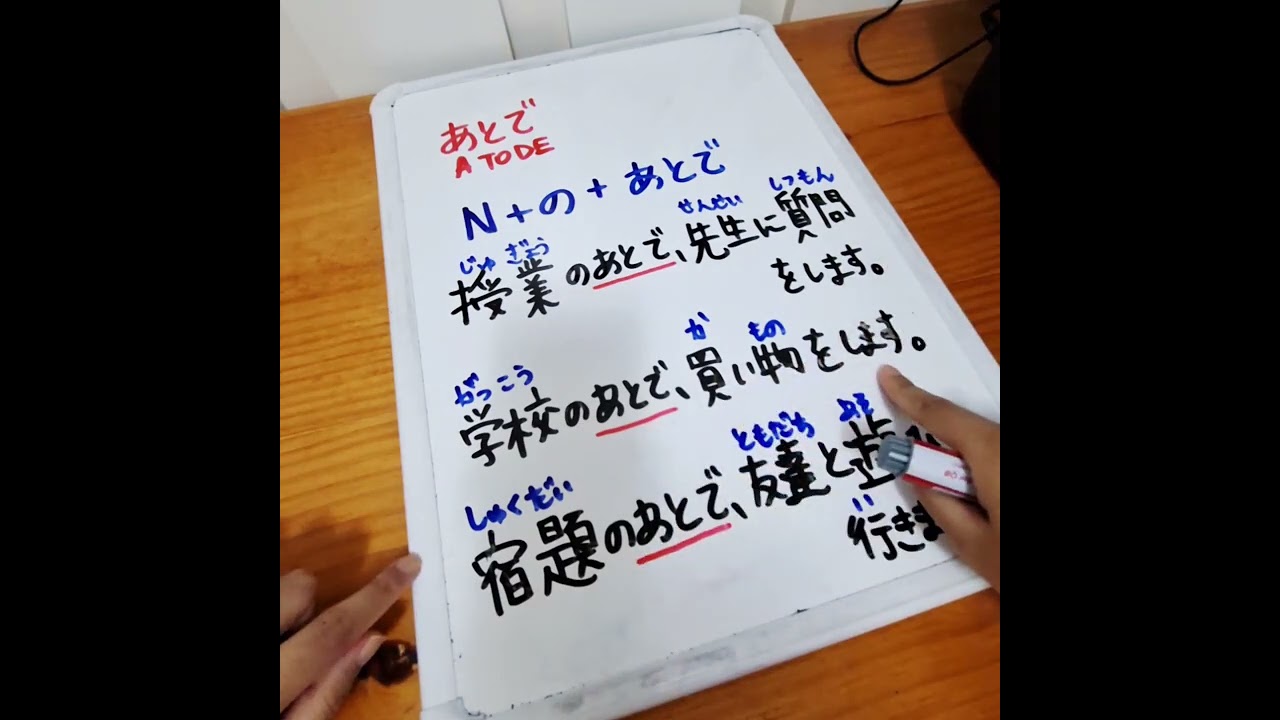 あとで
A TO DE
N+の+あとで
じゅ ぎょう せんせい しつもん
授業のあとで、先生に質問
をします。
がっこう か もの
学校のあとで、買い物をします。
しゅくだい ともだち あそ
宿題のあとで、友達と
い
行きま